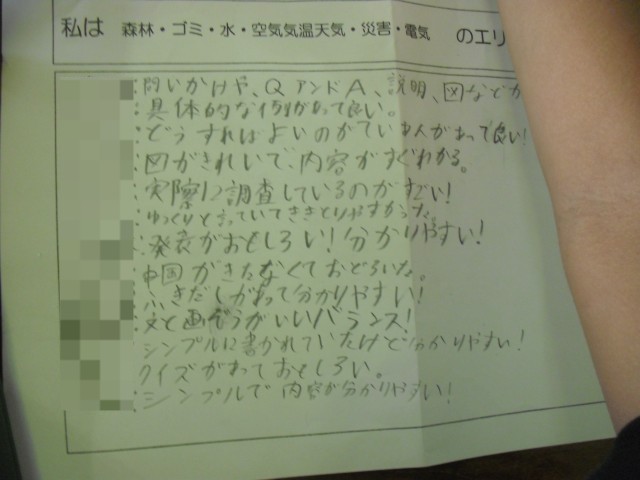 私は 森林・ゴミ・水・空気気温天気・災害・電気 のエリ
問いかけや、QアンドA、説明、図などが
具体的な例があって良い。
どうすればよいのかていあんがあって良い!
図がきれいで、内容がすぐわかる。
実際に調査しているのがすごい!
ゆっくりと言っていてききとりやすかった。
発表がおもしろい!分かりやすい!
中国がきたなくておどろいた。
ふきだしがあって分かりやすい!
文と画ぞうがいいバランス!
シンプルに書かれていたけど分かりやすい!
クイズがあっておもしろい。
シンプルで内容が分かりやすい!